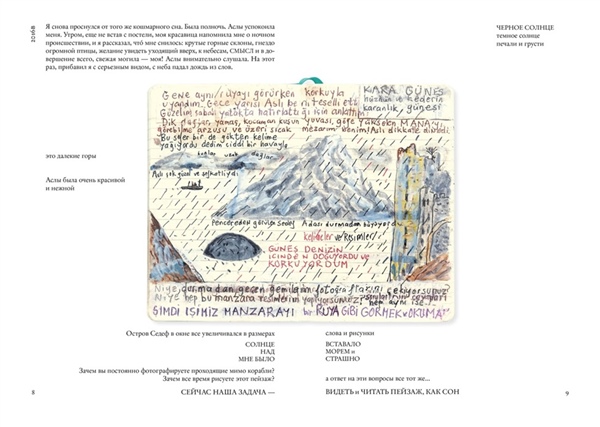 2016В
Я снова проснулся от того же кошмарного сна. Была полночь. Аслы успокоила
меня. Утром, еще не встав с постели, моя красавица напомнила мне о ночном
происшествии, и я рассказал, что мне снилось: крутые горные склоны, гнездо
огромной птицы, желание увидеть уходящий вверх, к небесам, СМЫСЛ и в до-
вершение всего, свежая могила — моя! Аслы внимательно слушала. На этот
раз, прибавил я с серьезным видом, с неба падал дождь из слов.
ЧЕРНОЕ СОЛНЦЕ
темное солнце
печали и грусти
Gene aynı rüyayı görürken korkuyla
uyandım. Gece yarısı Aslı beni teselli etti
Güzelim sabah yatakta hatırlattığı için anlattım
Dik dağlar, yamaç, kocaman kuşun yuvası, göğe yükselen MANA'yı
görebilme arzusu ve üzeri sıcak mezarım benim! Aslı dikkatle dinledi
Bu sefer bir de gökten kelime
yağıyordu dedim ciddi bir havayla
KARA GÜNEŞ
hüzün ve kederin
karanlık güneşi
это далекие горы
dağlar uzak dağlar
Aslı çok güzel ve şefkatliydi
Аслы была очень красивой
и нежной
Pencereden görülen Sedef Adası durmadan büyüyordu
kelimeler ve resimler
GÜNEŞ DENİZİN
İÇİNDEN DOĞUYORDU VE
KORKUYORDUM
Niye durmadan geçen gemilerin fotoğraflarını çekiyorsunuz?
Niye hep bu manzara resimlerini yapıyorsunuz?
hep aynı ise...
ŞİMDİ İŞİMİZ MANZARAYI bir RÜYA GİBİ GÖRMEK VE OKUMAK
Остров Седеф в окне все увеличивался в размерах
слова и рисунки
СОЛНЦЕ
НАД
МНЕ БЫЛО
ВСТАВАЛО
МОРЕМ и
СТРАШНО
Зачем вы постоянно фотографируете проходящие мимо корабли?
Зачем все время рисуете этот пейзаж?
а ответ на эти вопросы все тот же...
8
СЕЙЧАС НАША ЗАДАЧА —
ВИДЕТЬ и ЧИТАТЬ ПЕЙЗАЖ, КАК СОН
9